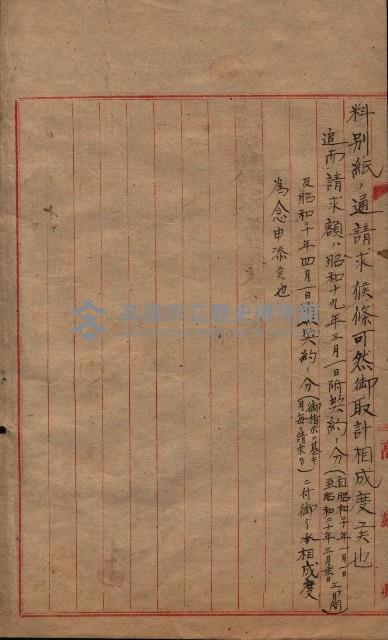 料別紙ノ通請求候條可然御取計相成度此段也
追而請求額ハ昭和十九年三月一日附契約ノ分(自昭和二十年一月一日至昭和二十年三月末日三月間)
及昭和二十年四月一日附契約ノ分(御指示ニ基キ月毎ニ請求ス)ニ付御了承相成度
為念申添候也
高雄市立歷史博物館
高雄